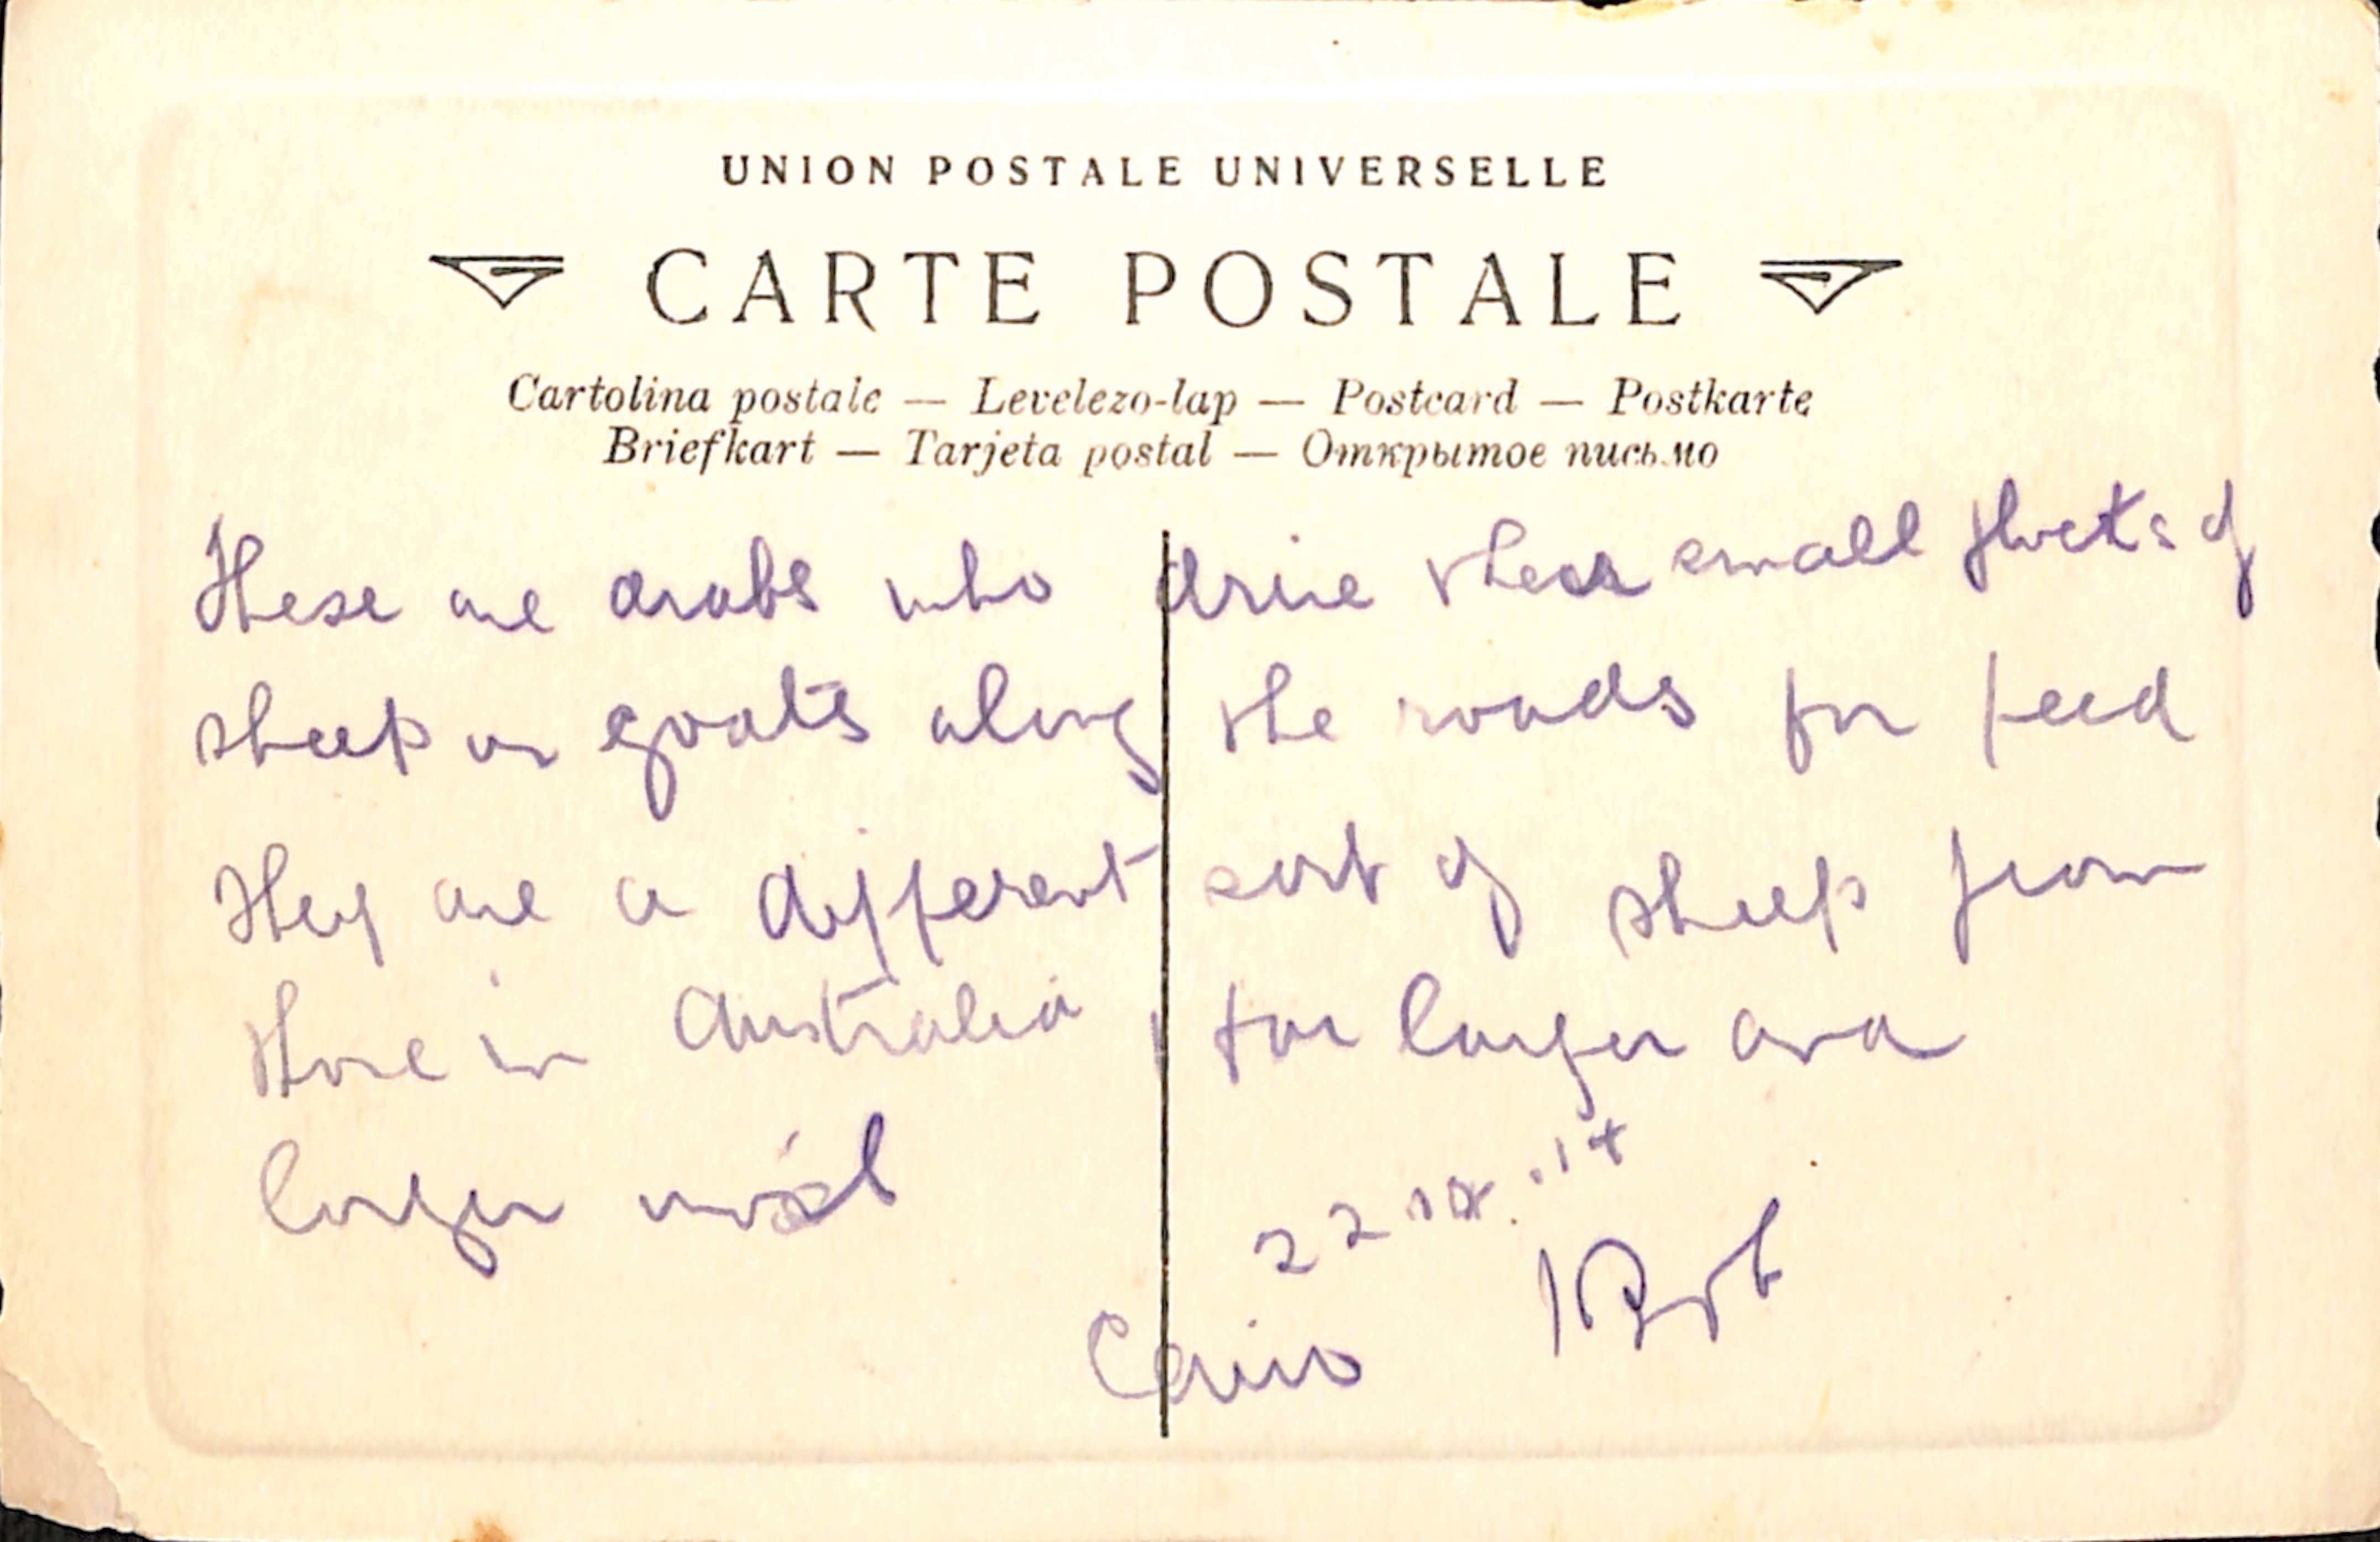 UNION POSTALE UNIVERSELLE
CARTE POSTALE
Cartolina postale — Levelezo-lap — Postcard — Postkarte
Briefkart — Tarjeta postal — Открытое письмо
These are arabs who drive their small flocks of
sheep or goats along the roads for feed
They are a different sort of sheep from
those in Australia, far larger and
larger wool
22
Cairo Bob